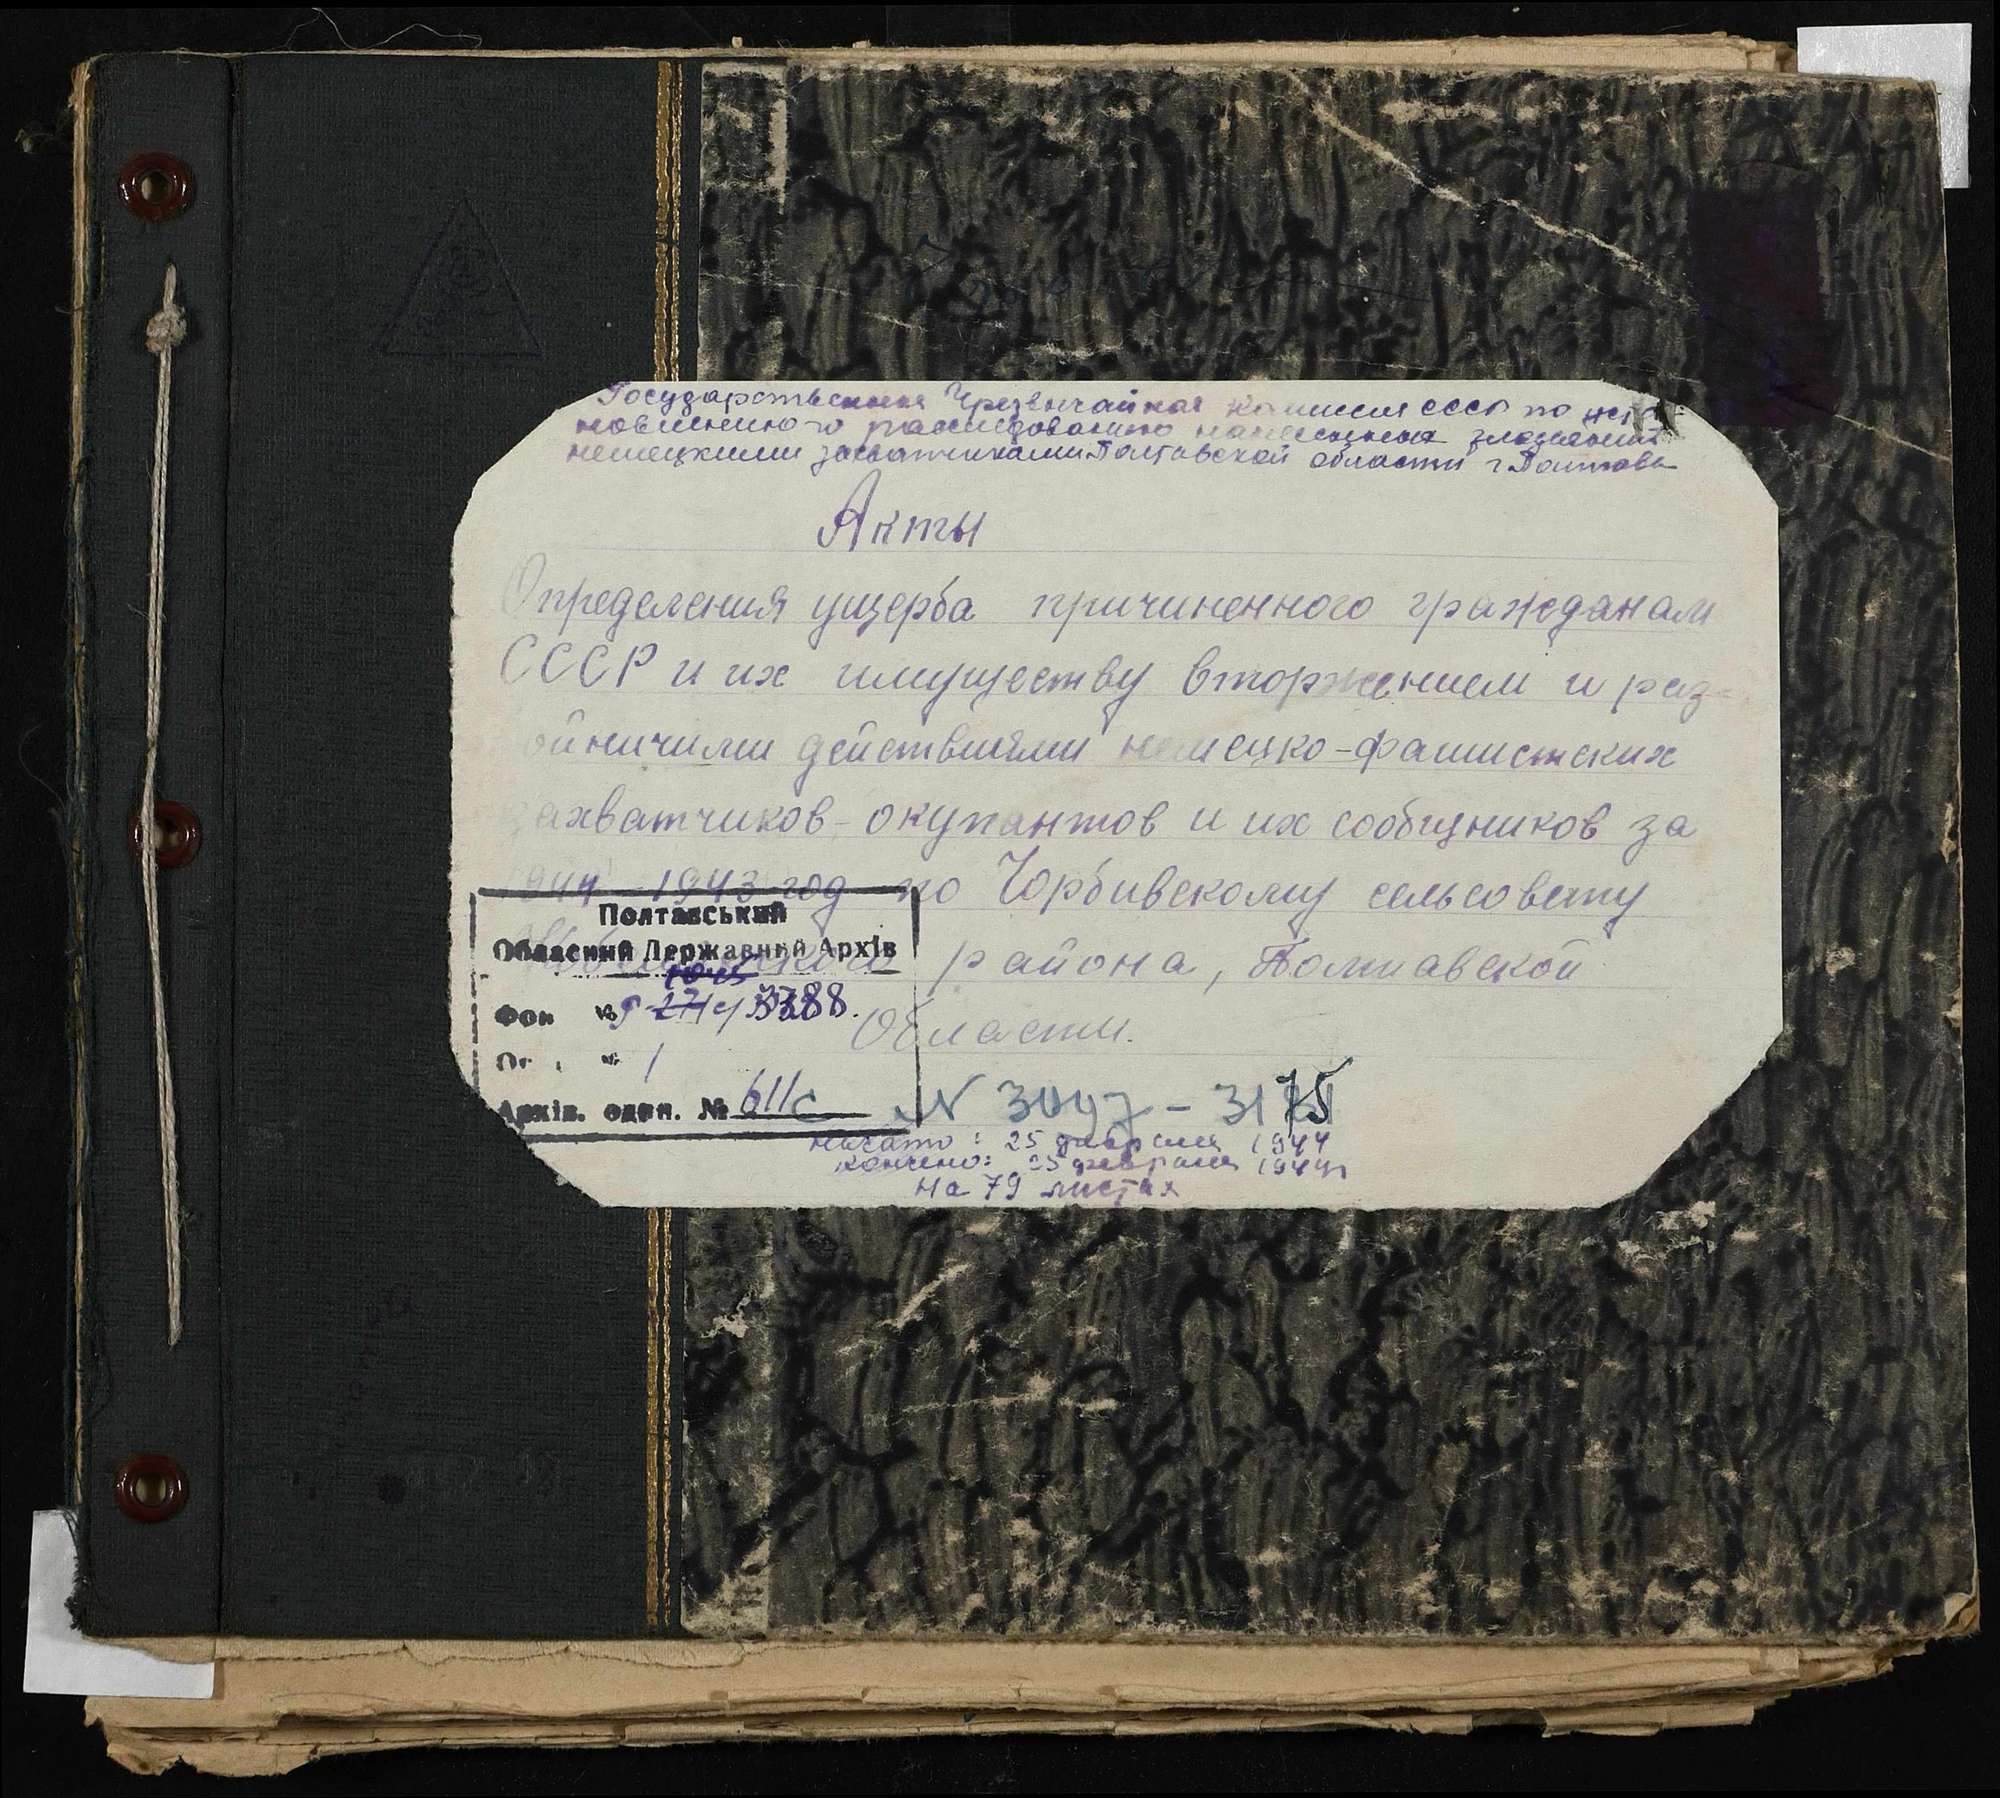 Государственная Чрезвичайная комиссия СССР по уста-
новлению и расследованию нанесенных злодеяний
немецкими захватчиками Полтавской области г Полтава
Акты
Определения ущерба причиненного гражданам
СССР и их имуществу вторжением и раз-
ойничими действиями немецко-фашистских
захватчиков-окупантов и их сообщников за
1943 год по Чорбивскому сельсовету
района, Полтавской
Области.
Полтавський
Обласний Державний Архів
Фон № 3388.
Оп. № 1
Архів. один. № 611с
N 3097 - 3175
начато: 25 февраля 1944
кончено: 25 февраля 1944г
на 79 листах